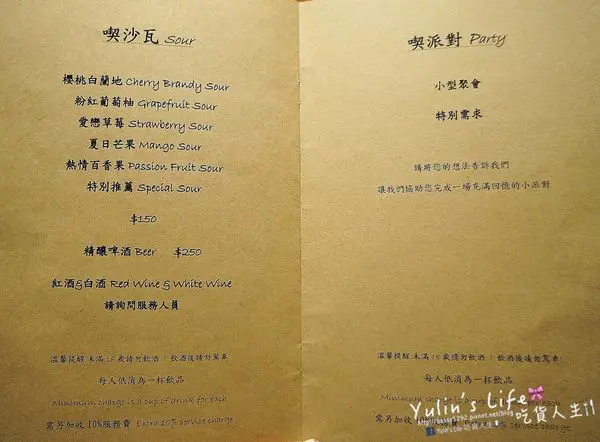 喫沙瓦 Sour
櫻桃白蘭地 Cherry Brandy Sour
粉紅葡萄柚 Grapefruit Sour
愛戀草莓 Strawberry Sour
夏日芒果 Mango Sour
熱情百香果 Passion Fruit Sour
特別推薦 Special Sour
$150
精釀啤酒 Beer $250
紅酒&白酒 Red Wine & White Wine
請詢問服務人員
溫馨提醒 未滿 18 歲請勿飲酒 飲酒後請勿駕車
每人低消為一杯飲品
Minimum charge is a cup of drink for each
需另加收 10%服務費 Extra 10% service charge
喫派對 Party
小型聚會
特別需求
請將您的想法告訴我們
讓我們協助您完成一場充滿回憶的小派對
溫馨提醒 未滿 18 歲請勿飲酒 飲酒後請勿駕車
每人低消為一杯飲品
Minimum charge is a cup of drink for each
需另加收 10%服務費 Extra 10% service charge
Yulin's Life
吃貨人生
Yulin's Life 吃貨人生